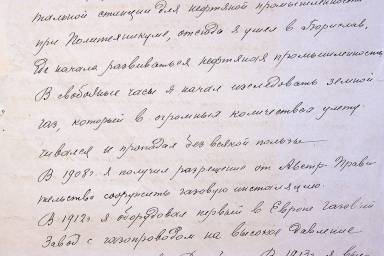 тальной станции для нефтяной промышленности
при Политехникуме, отсюда я ушел в Борислав,
где начала развиваться нефтяная промышленность
В свободные часы я начал исследовать земной
газ, который в огромных количествах улету-
чивался и пропадал без всякой пользы
В 1908г. я получил разрешение от Австр. Прави
тельство сооружить газовую инсталяцию.
В 1912г. я оборудовал первый в Европе газовый
Завод с газопроводом на высокое давление
В 1913г. я